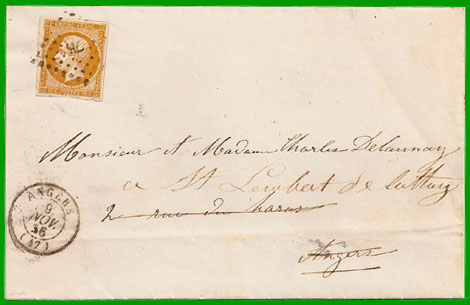 EMPIRE FRANC
Monsieur et Madame Charles Delaunay
a St Lambert de Lattay
2 rue du haras
Angers
ANGERS
9
NOV.
56
(47)